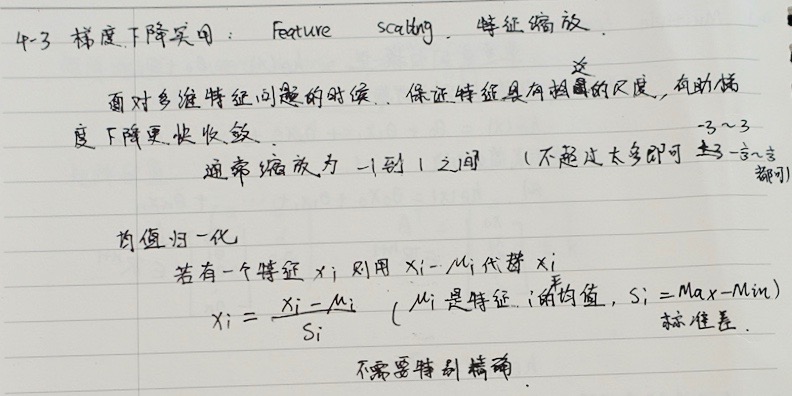 4-3 梯度下降实用: Feature scaling. 特征缩放.
面对多维特征问题的时候. 保证特征具有相近的尺度, 有助梯
度下降更快收敛.
通常缩放为 -1到1之间 (不超过太多即可 -3~3 -⅓~⅓ 都可)
均值归一化
若有一个特征 xi 则用 xi-μi 代替 xi
xi = (xi-μi)/Si (μi是特征i的平均值, Si = Max-Min)
标准差.
不需要特别精确.